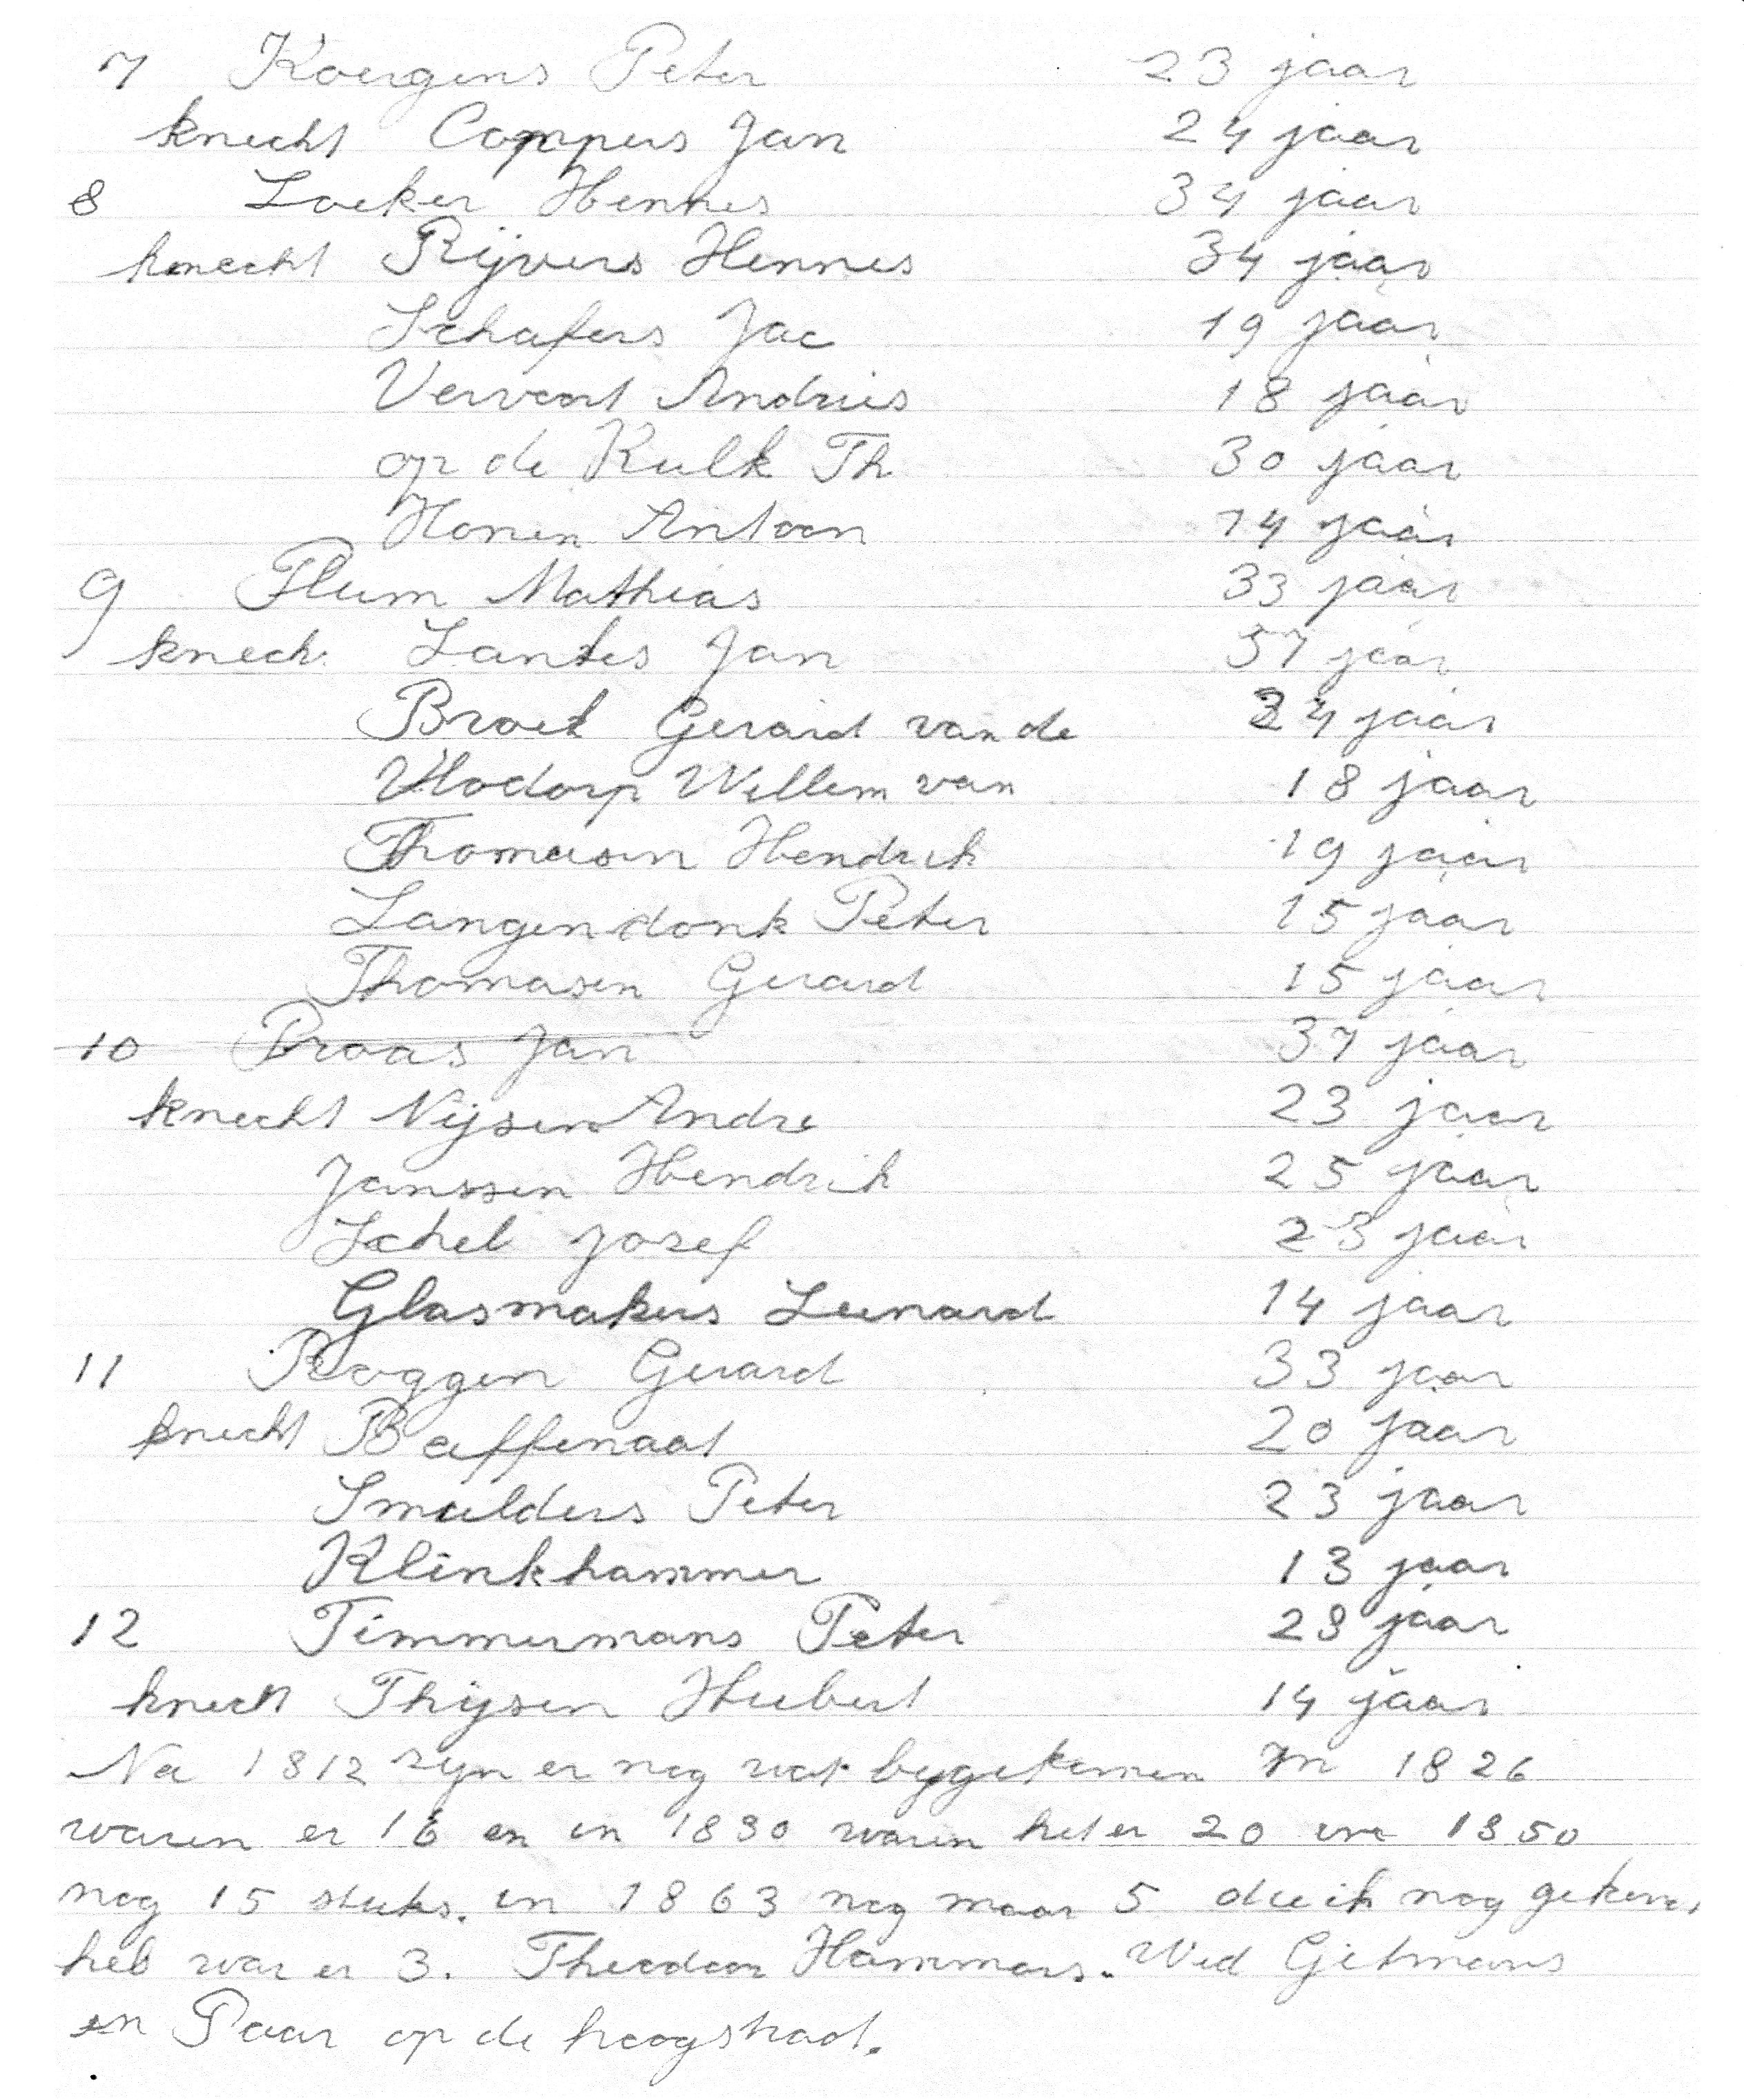 7 Koergens Peter 23 jaar
knecht Coppers Jan 24 jaar
8 Loeker Hennes 34 jaar
knecht Rijvers Hennes 34 jaar
Schafers Jac 19 jaar
Vervoort Andries 18 jaar
op de Kulk Th 30 jaar
Honen Antoon 14 jaar
9 Flum Mathias 33 jaar
knech Lantes Jan 57 jaar
Broek Gerard van de 24 jaar
Vlodorp Willem van 18 jaar
Thomasen Hendrik 19 jaar
Langendonk Peter 15 jaar
Thomasen Gerard 15 jaar
10 Braas Jan 37 jaar
knecht Nijsen Andre 23 jaar
Janssen Hendrik 25 jaar
Schel Josef 23 jaar
Glasmakers Leenard 14 jaar
11 Roggen Gerard 33 jaar
knecht Baffenaat 20 jaar
Smulders Peter 23 jaar
Klinkhammer 13 jaar
12 Timmermans Peter 23 jaar
knecht Thijsen Hubert 14 jaar
Na 1812 zyn er nog wat bygekomen In 1826
waren er 16 en in 1830 waren het er 20 in 1850
nog 15 stuks. in 1863 nog maar 5 die ik nog gekend
heb war er 3. Theodoor Hammans. Wed Gitmans
en Paar op de hoogstraat.